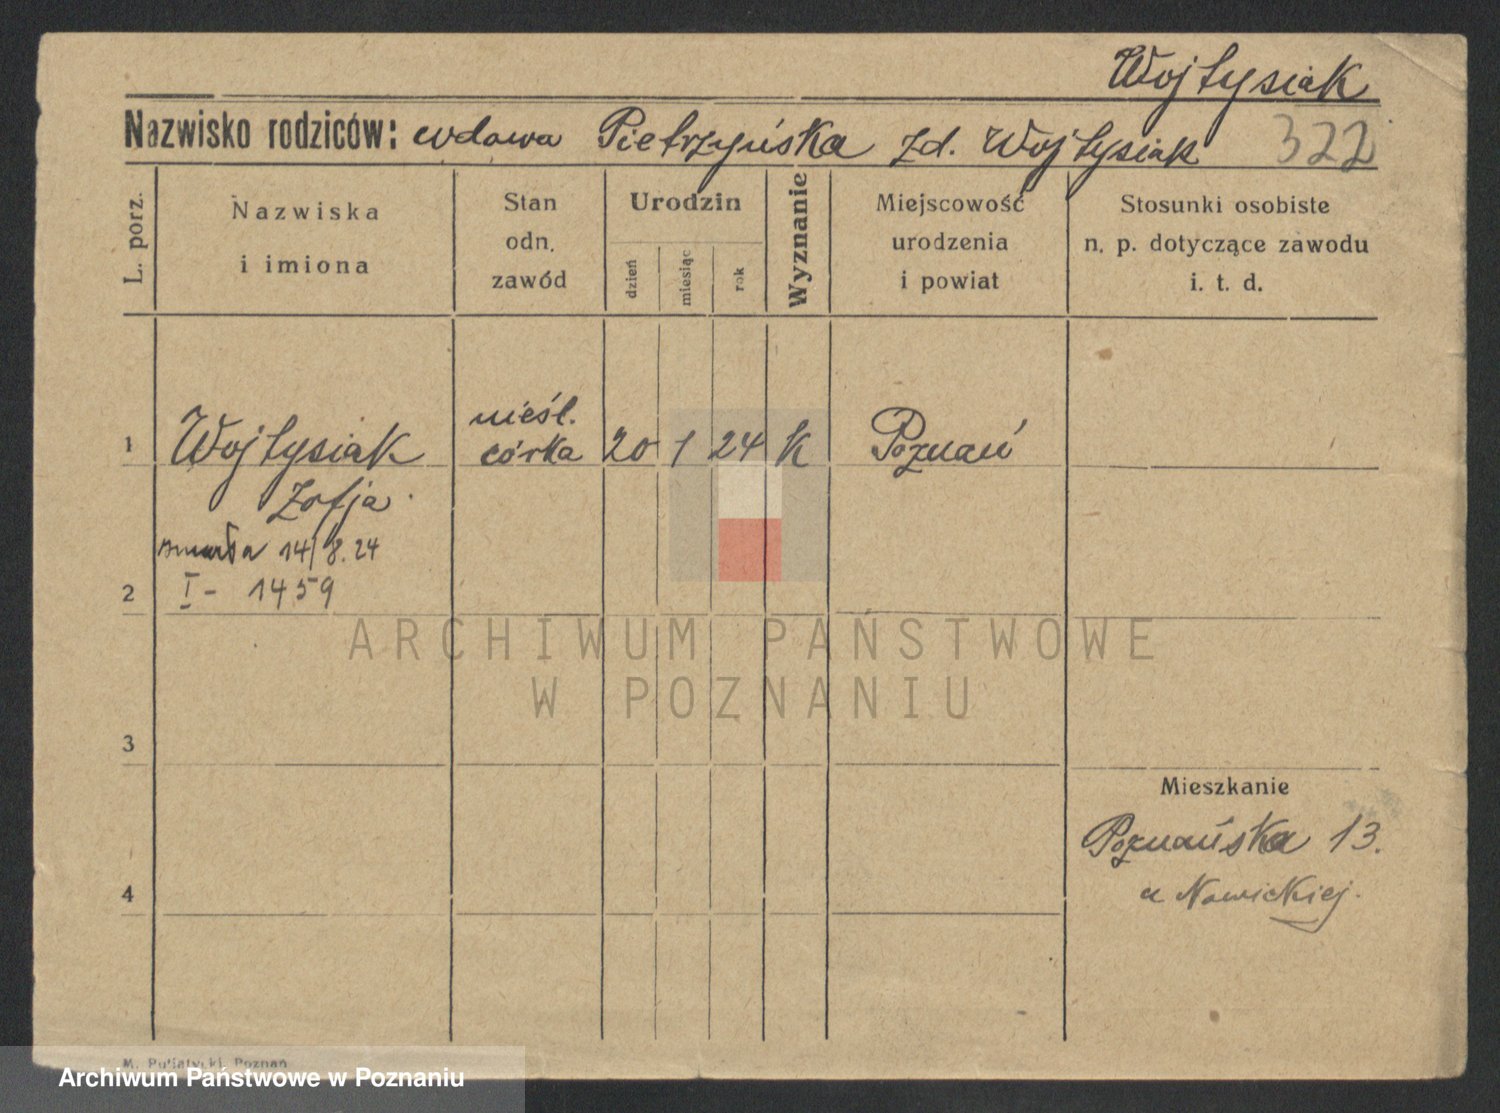 Wojtysiak
Nazwisko rodziców: wdowa Pietrzyńska zd. Wojtysiak 322
L. porz.
Nazwiska
i imiona
Stan
odn.
zawód
Urodzin
dzień
miesiąc
rok
Wyznanie
Miejscowość
urodzenia
i powiat
Stosunki osobiste
n. p. dotyczące zawodu
i. t. d.
1 Wojtysiak nieśl. córka 20 1 24 K Poznań
Zofja
zmarła 14/8.24
2 I - 1459
3
Mieszkanie
Poznańska 13.
u Nowickiej.
4
ARCHIWUM PAŃSTWOWE
W POZNANIU
M. Putiatycki, Poznań
Archiwum Państwowe w Poznaniu